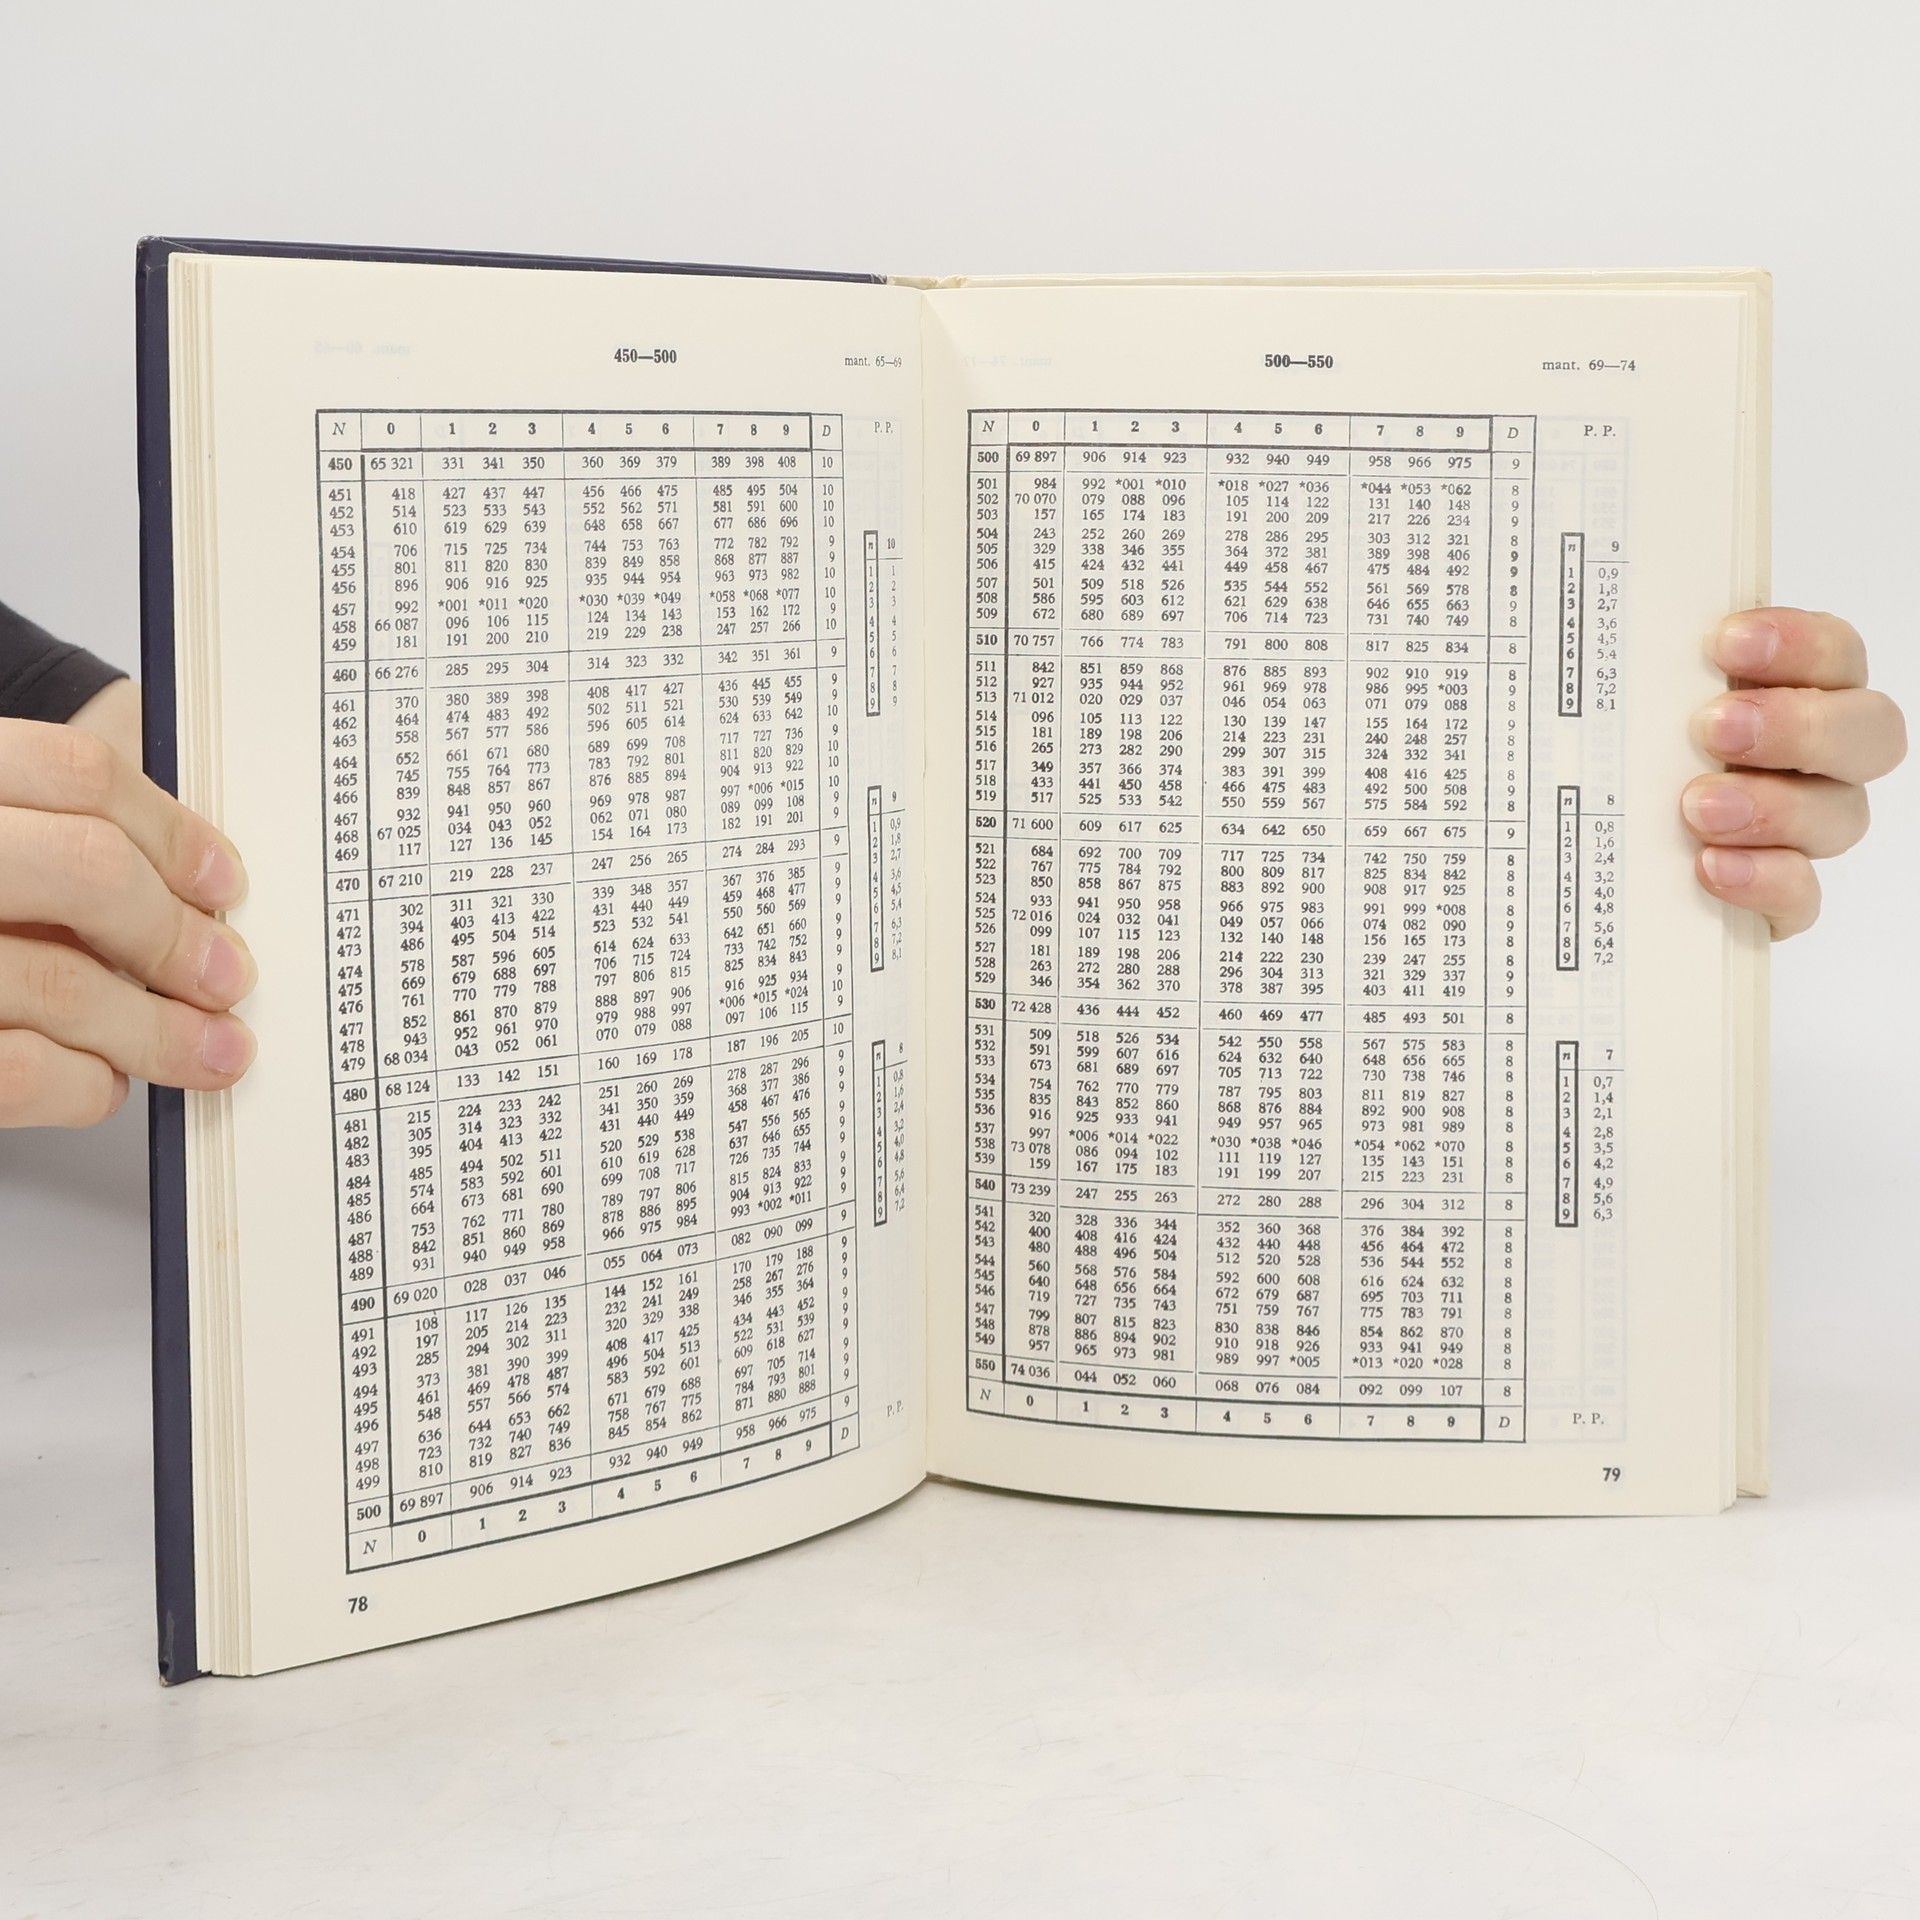 450—500 mant. 65—69
N 0 1 2 3 4 5 6 7 8 9 D P. P.
450 65 321 331 341 350 360 369 379 389 398 408 10
451 418 427 437 447 456 466 475 485 495 504 10
452 514 523 533 543 552 562 571 581 591 600 10
453 610 619 629 639 648 658 667 677 686 696 10
454 706 715 725 734 744 753 763 772 782 792 9
455 801 811 820 830 839 849 858 868 877 887 9
456 896 906 916 925 935 944 954 963 973 982 10
457 992 *001 *011 *020 *030 *039 *049 *058 *068 *077 10
458 66 087 096 106 115 124 134 143 153 162 172 9
459 181 191 200 210 219 229 238 247 257 266 10
460 66 276 285 295 304 314 323 332 342 351 361 9
461 370 380 389 398 408 417 427 436 445 455 9
462 464 474 483 492 502 511 521 530 539 549 9
463 558 567 577 586 596 605 614 624 633 642 10
464 652 661 671 680 689 699 708 717 727 736 9
465 745 755 764 773 783 792 801 811 820 829 10
466 839 848 857 867 876 885 894 904 913 922 10
467 932 941 950 960 969 978 987 997 *006 *015 10
468 67 025 034 043 052 062 071 080 089 099 108 9
469 117 127 136 145 154 164 173 182 191 201 9
470 67 210 219 228 237 247 256 265 274 284 293 9
471 302 311 321 330 339 348 357 367 376 385 9
472 394 403 413 422 431 440 449 459 468 477 9
473 486 495 504 514 523 532 541 550 560 569 9
474 578 587 596 605 614 624 633 642 651 660 9
475 669 679 688 697 706 715 724 733 742 752 9
476 761 770 779 788 797 806 815 825 834 843 9
477 852 861 870 879 888 897 906 916 925 934 9
478 943 952 961 970 979 988 997 *006 *015 *024 10
479 68 034 043 052 061 070 079 088 097 106 115 9
480 68 124 133 142 151 160 169 178 187 196 205 10
481 215 224 233 242 251 260 269 278 287 296 9
482 305 314 323 332 341 350 359 368 377 386 9
483 395 404 413 422 431 440 449 458 467 476 9
484 485 494 502 511 520 529 538 547 556 565 9
485 574 583 592 601 610 619 628 637 646 655 9
486 664 673 681 690 699 708 717 726 735 744 9
487 753 762 771 780 789 797 806 815 824 833 9
488 842 851 860 869 878 886 895 904 913 922 9
489 931 940 949 958 966 975 984 993 *002 *011 9
490 69 020 028 037 046 055 064 073 082 090 099 9
491 108 117 126 135 144 152 161 170 179 188 9
492 197 205 214 223 232 241 249 258 267 276 9
493 285 294 302 311 320 329 338 346 355 364 9
494 373 381 390 399 408 417 425 434 443 452 9
495 461 469 478 487 496 504 513 522 531 539 9
496 548 557 566 574 583 592 601 609 618 627 9
497 636 644 653 662 671 679 688 697 705 714 9
498 723 732 740 749 758 767 775 784 793 801 9
499 810 819 827 836 845 854 862 871 880 888 9
500 69 897 906 914 923 932 940 949 958 966 975 9
N 0 1 2 3 4 5 6 7 8 9 D P. P.
n 10
1 1
2 2
3 3
4 4
5 5
6 6
7 7
8 8
9 9
n 9
1 0,9
2 1,8
3 2,7
4 3,6
5 4,5
6 5,4
7 6,3
8 7,2
9 8,1
n 8
1 0,8
2 1,6
3 2,4
4 3,2
5 4,0
6 4,8
7 5,6
8 6,4
9 7,2
78
500—550 mant. 69—74
N 0 1 2 3 4 5 6 7 8 9 D P. P.
500 69 897 906 914 923 932 940 949 958 966 975 9
501 984 992 *001 *010 *018 *027 *036 *044 *053 *062 8
502 70 070 079 088 096 105 114 122 131 140 148 9
503 157 165 174 183 191 200 209 217 226 234 9
504 243 252 260 269 278 286 295 303 312 321 8
505 329 338 346 355 364 372 381 389 398 406 9
506 415 424 432 441 449 458 467 475 484 492 9
507 501 509 518 526 535 544 552 561 569 578 8
508 586 595 603 612 621 629 638 646 655 663 9
509 672 680 689 697 706 714 723 731 740 749 8
510 70 757 766 774 783 791 800 808 817 825 834 8
511 842 851 859 868 876 885 893 902 910 919 8
512 927 935 944 952 961 969 978 986 995 *003 9
513 71 012 020 029 037 046 054 063 071 079 088 8
514 096 105 113 122 130 139 147 155 164 172 9
515 181 189 198 206 214 223 231 240 248 257 8
516 265 273 282 290 299 307 315 324 332 341 8
517 349 357 366 374 383 391 399 408 416 425 8
518 433 441 450 458 466 475 483 492 500 508 9
519 517 525 533 542 550 559 567 575 584 592 8
520 71 600 609 617 625 634 642 650 659 667 675 9
521 684 692 700 709 717 725 734 742 750 759 8
522 767 775 784 792 800 809 817 825 834 842 8
523 850 858 867 875 883 892 900 908 917 925 8
524 933 941 950 958 966 975 983 991 999 *008 8
525 72 016 024 032 041 049 057 066 074 082 090 9
526 099 107 115 123 132 140 148 156 165 173 8
527 181 189 198 206 214 222 230 239 247 255 8
528 263 272 280 288 296 304 313 321 329 337 9
529 346 354 362 370 378 387 395 403 411 419 9
530 72 428 436 444 452 460 469 477 485 493 501 8
531 509 518 526 534 542 550 558 567 575 583 8
532 591 599 607 616 624 632 640 648 656 665 8
533 673 681 689 697 705 713 722 730 738 746 8
534 754 762 770 779 787 795 803 811 819 827 8
535 835 843 852 860 868 876 884 892 900 908 8
536 916 925 933 941 949 957 965 973 981 989 8
537 997 *006 *014 *022 *030 *038 *046 *054 *062 *070 8
538 73 078 086 094 102 111 119 127 135 143 151 8
539 159 167 175 183 191 199 207 215 223 231 8
540 73 239 247 255 263 272 280 288 296 304 312 8
541 320 328 336 344 352 360 368 376 384 392 8
542 400 408 416 424 432 440 448 456 464 472 8
543 480 488 496 504 512 520 528 536 544 552 8
544 560 568 576 584 592 600 608 616 624 632 8
545 640 648 656 664 672 679 687 695 703 711 8
546 719 727 735 743 751 759 767 775 783 791 8
547 799 807 815 823 830 838 846 854 862 870 8
548 878 886 894 902 910 918 926 933 941 949 8
549 957 965 973 981 989 997 *005 *013 *020 *028 8
550 74 036 044 052 060 068 076 084 092 099 107 8
N 0 1 2 3 4 5 6 7 8 9 D P. P.
n 9
1 0,9
2 1,8
3 2,7
4 3,6
5 4,5
6 5,4
7 6,3
8 7,2
9 8,1
n 8
1 0,8
2 1,6
3 2,4
4 3,2
5 4,0
6 4,8
7 5,6
8 6,4
9 7,2
n 7
1 0,7
2 1,4
3 2,1
4 2,8
5 3,5
6 4,2
7 4,9
8 5,6
9 6,3
79